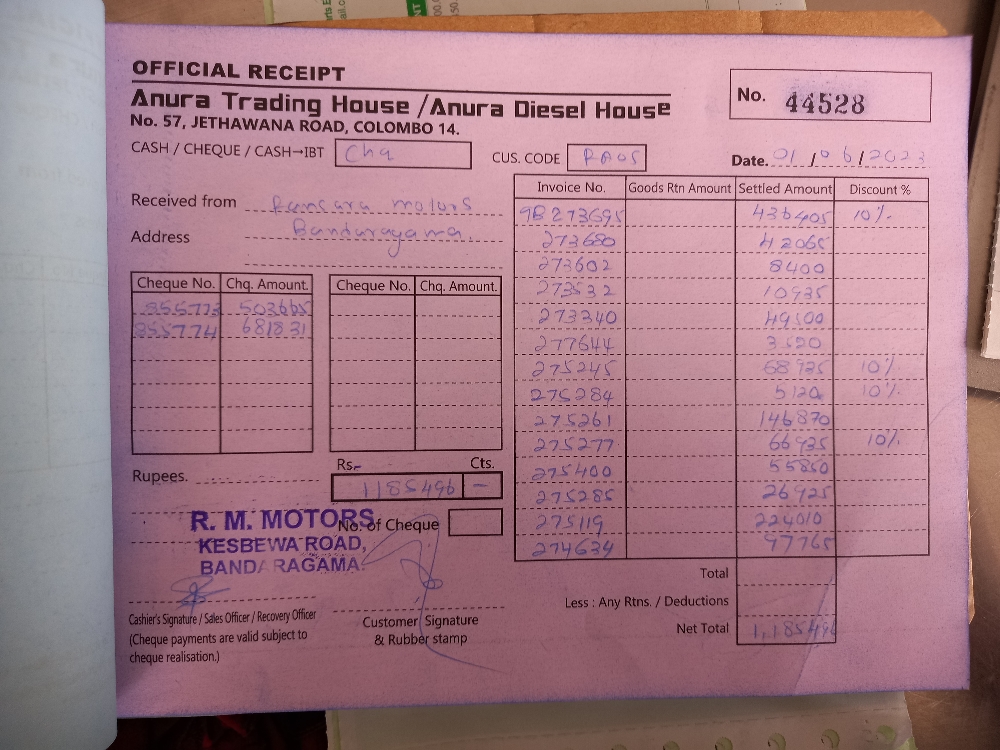 OFFICIAL RECEIPT
Anura Trading House /Anura Diesel House
No. 57, JETHAWANA ROAD, COLOMBO 14.
No. 44528
CASH / CHEQUE / CASH→IBT Chq
CUS. CODE
Date. 01/06/2023
Received from motors
Address Bandaragama
Cheque No. Chq. Amount.
855773 503665
855774 681831
Cheque No. Chq. Amount.
Rupees.
Rs.- Cts.
1185496 –
No. of Cheque
R. M. MOTORS
KESBEWA ROAD,
BANDARAGAMA.
Cashier's Signature / Sales Officer / Recovery Officer
(Cheque payments are valid subject to
cheque realisation.)
Customer Signature
& Rubber stamp
Invoice No. Goods Rtn Amount Settled Amount Discount %
273695 436405 10%
273680 42065
273602 8400
273532 10935
273340 49500
277644 3520
275245 68935 10%
275284 5120 10%
275261 146870
275277 66935 10%
275400 55850
275285 26925
275119 224010
274634 97765
Total
Less : Any Rtns. / Deductions
Net Total 1,185496